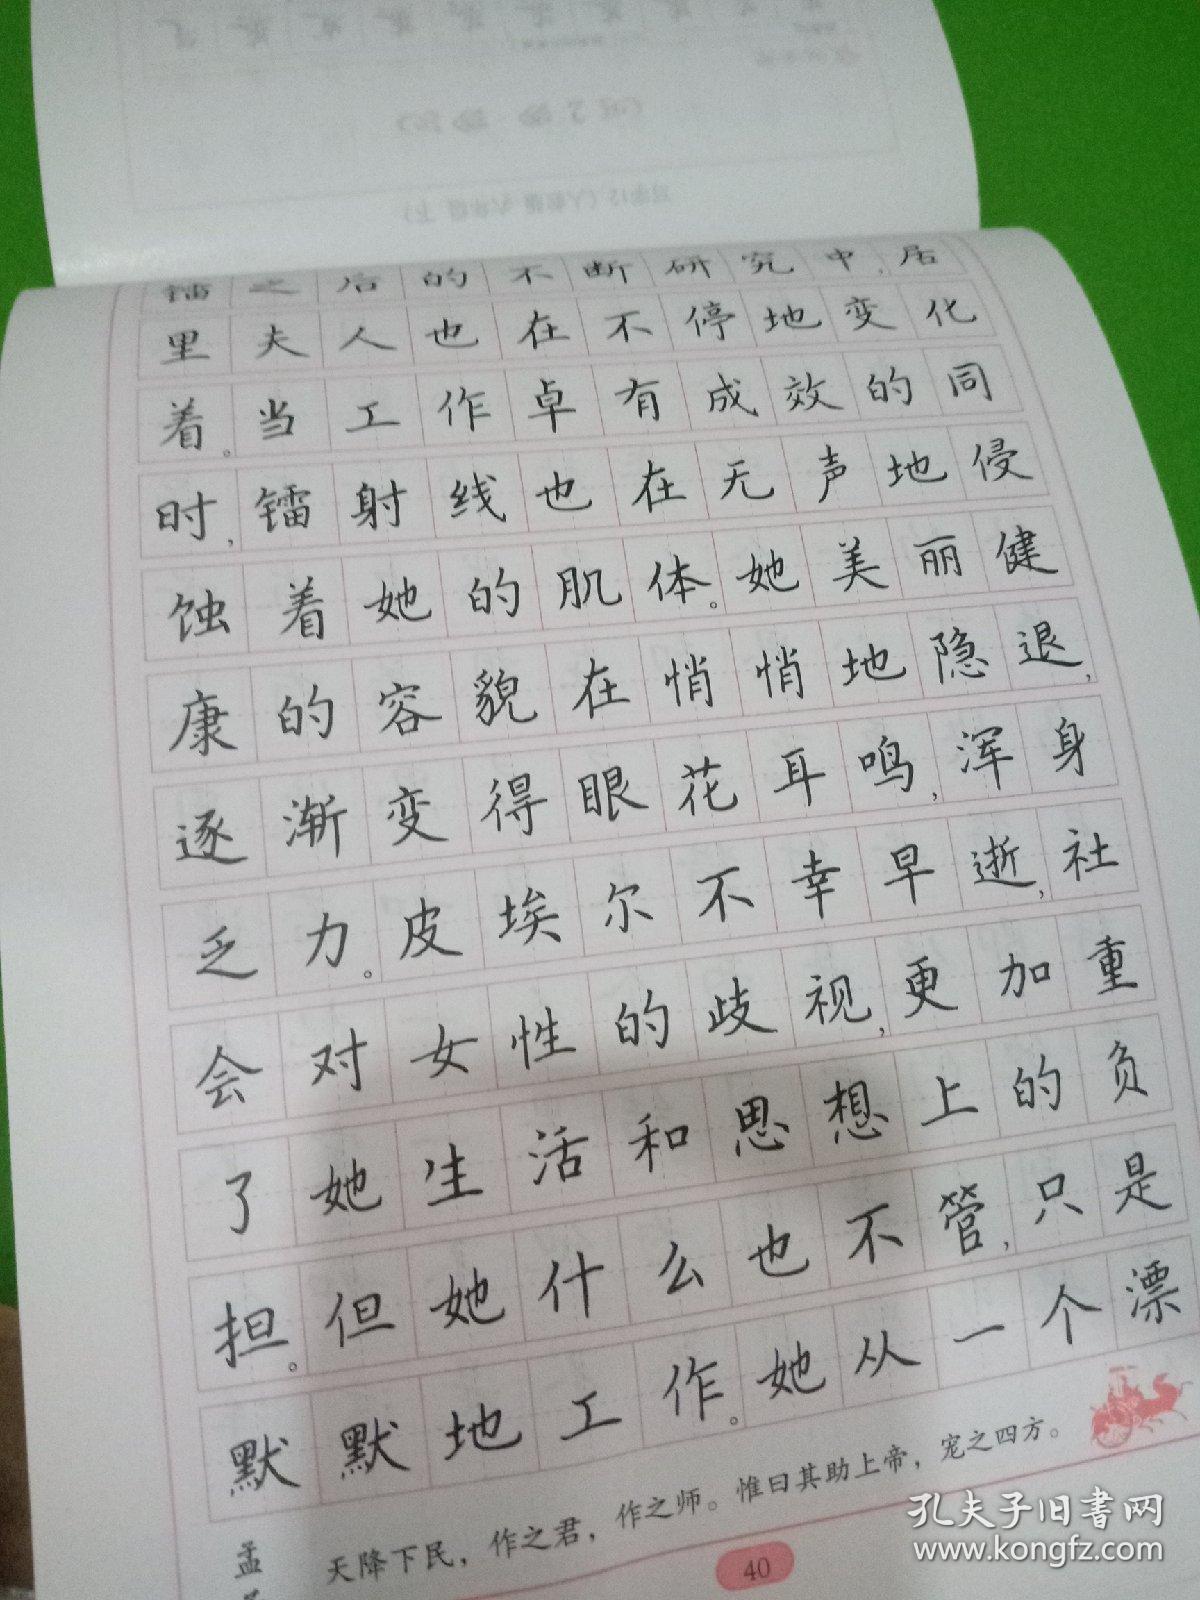 镭之后的不断研究中,居
里夫人也在不停地变化
着。当工作卓有成效的同
时,镭射线也在无声地侵
蚀着她的肌体。她美丽健
康的容貌在悄悄地隐退,
逐渐变得眼花耳鸣,浑身
乏力。皮埃尔不幸早逝,社
会对女性的歧视,更加重
了她生活和思想上的负
担。但她什么也不管,只是
默默地工作。她从一个漂
天降下民，作之君，作之师。惟曰其助上帝，宠之四方。
40
孔夫子旧书网
www.kongfz.com